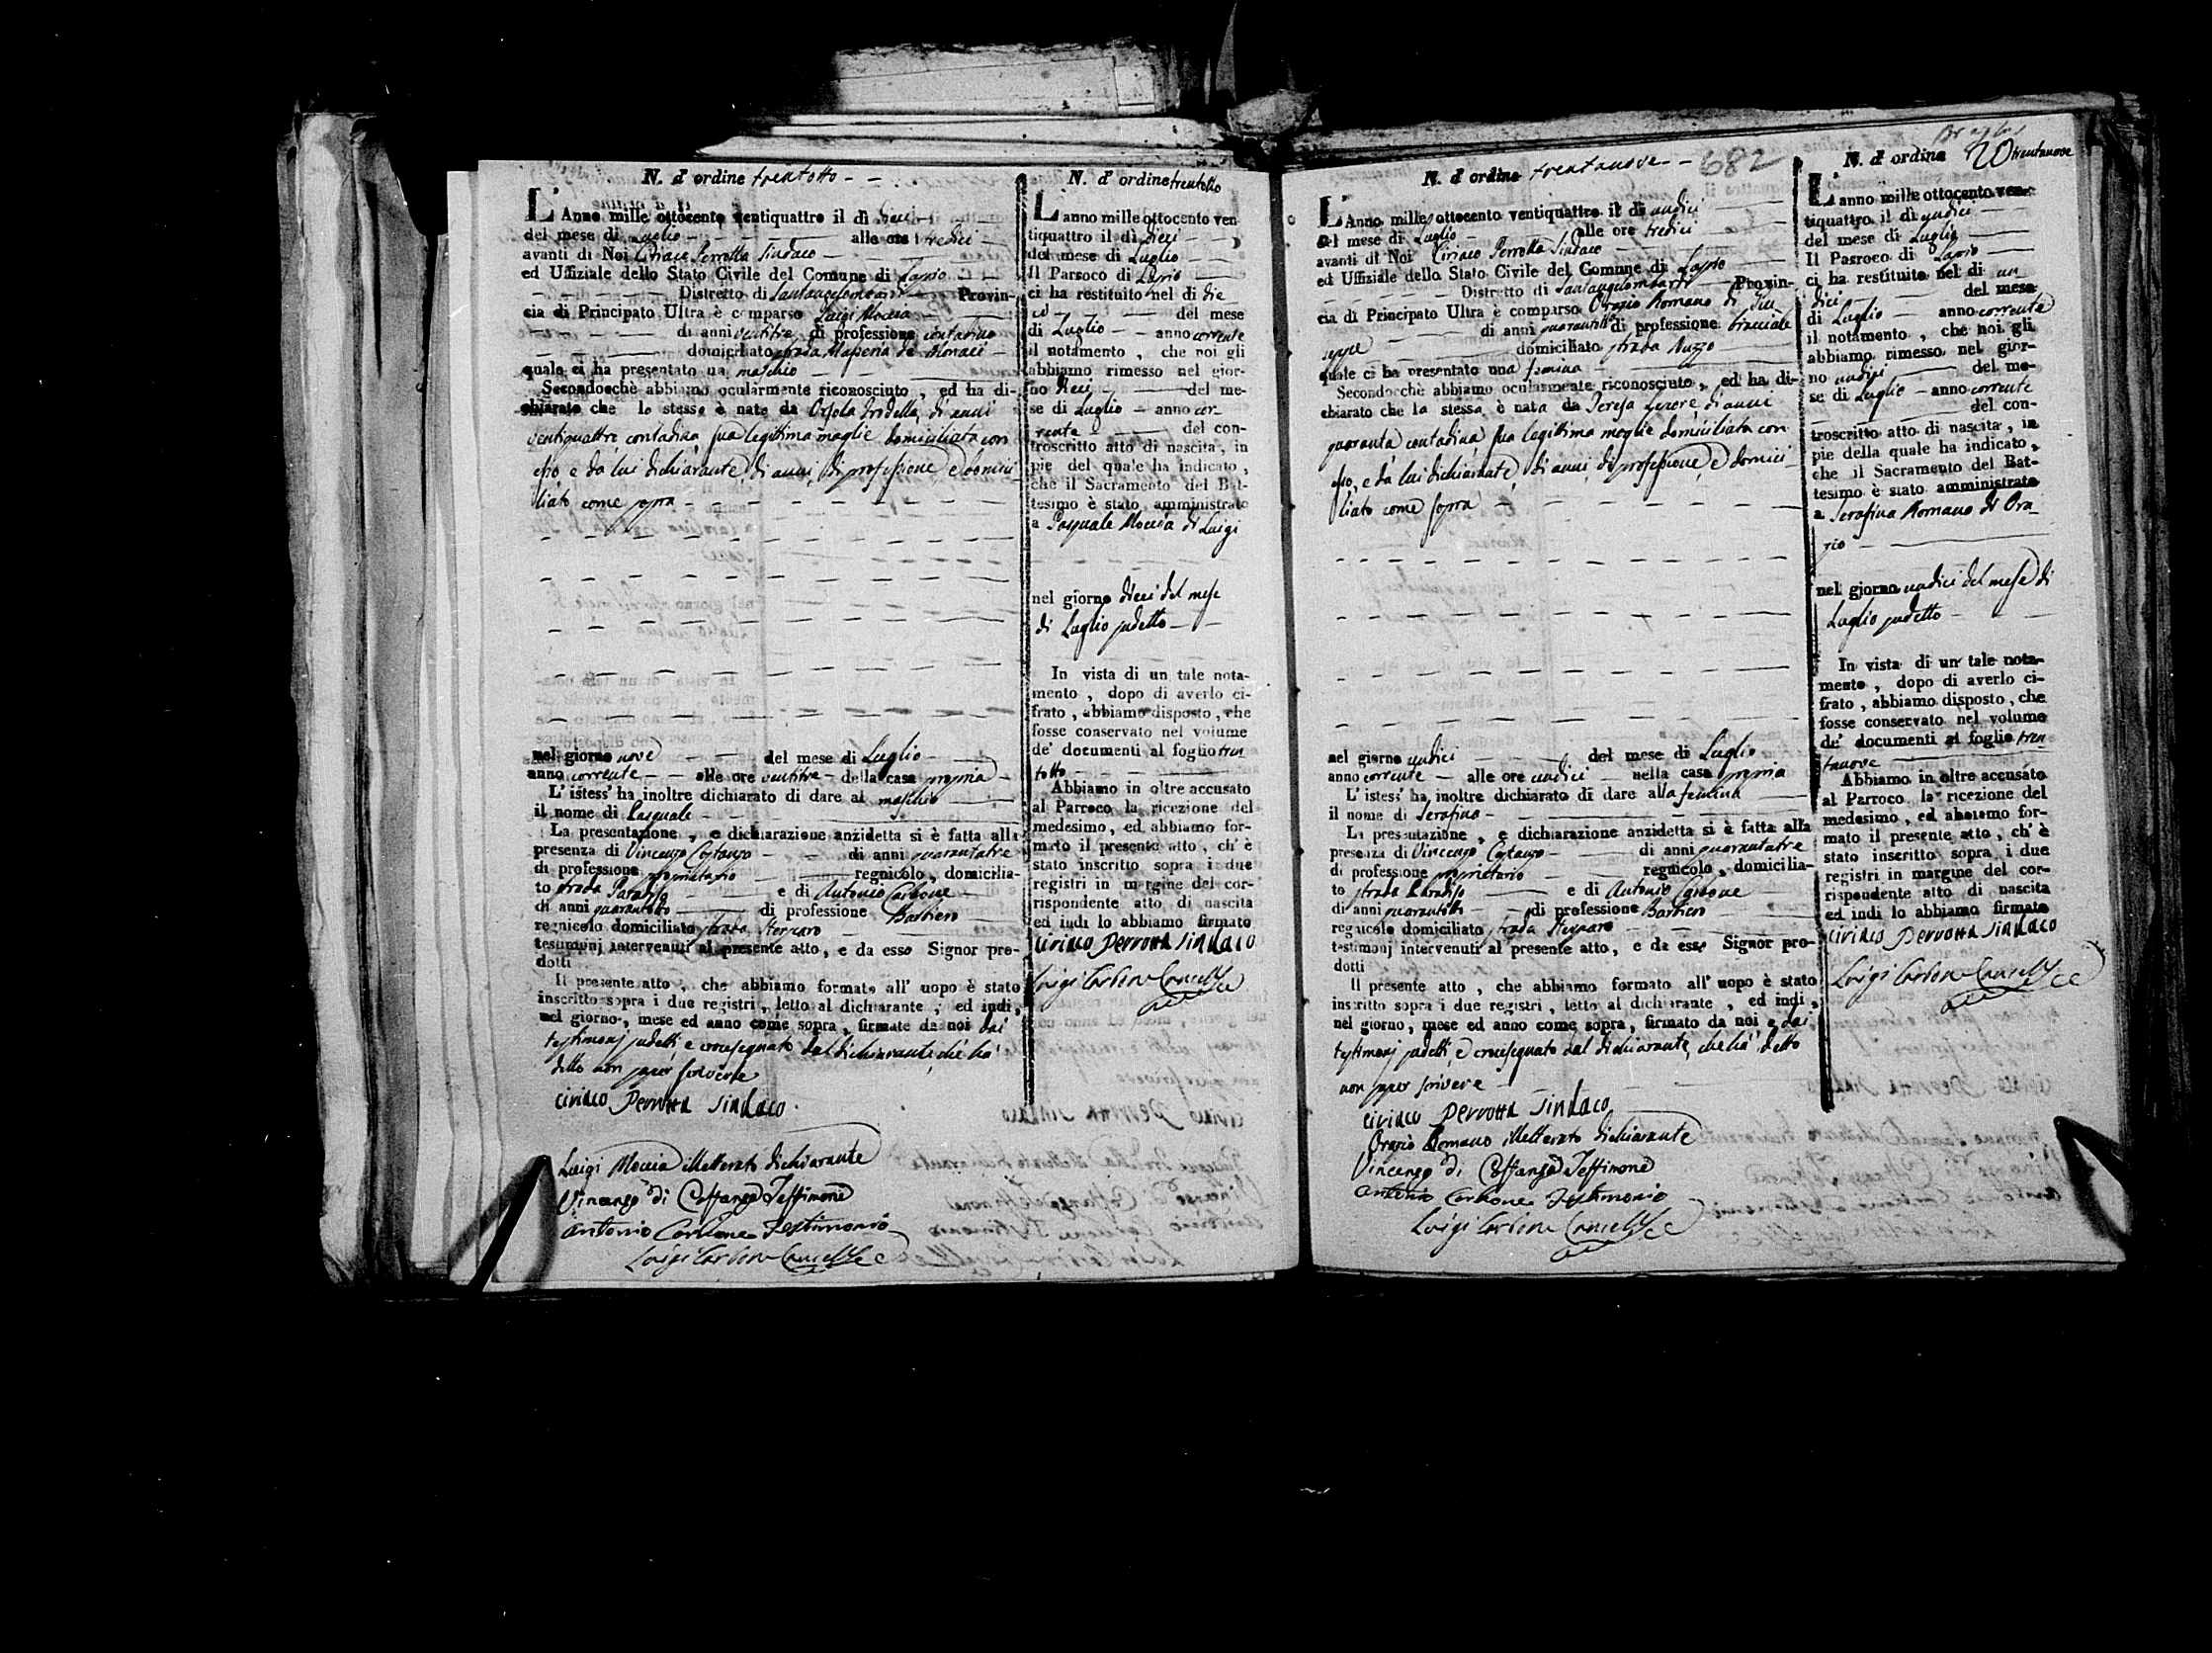 N. d' ordine trentotto - -
L'Anno mille ottocento ventiquattro il dì dieci
del mese di Luglio alle ore tredici
avanti di Noi Ciriaco Perrotta Sindaco
ed Uffiziale dello Stato Civile del Comune di Lapio
Distretto di Santangelolombardi Provin-
cia di Principato Ultra è comparso Luigi Moccia
di anni ventitre di professione contadino
domiciliato strada Masseria de Monaci
quale ci ha presentato un maschio
Secondocchè abbiamo ocularmente riconosciuto, ed ha di-
chiarato che lo stesso è nato da Orsola Irodella, di anni
ventiquattro contadina sua legittima moglie domiciliata con
esso e da lui dichiarante, di anni, di professione e domici
liato come sopra
nel giorno nove del mese di Luglio
anno corrente alle ore ventitre della casa propria
L' istess' ha inoltre dichiarato di dare al maschio
il nome di Pasquale
La presentazione, e dichiarazione anzidetta si è fatta alla
presenza di Vincenzo Costanzo di anni quarantatre
di professione proprietario regnicolo, domicilia-
to strada Paradiso e di Antonio Carbone
di anni quarantotto di professione Barbiero
regnicolo domiciliato strada
testimonj intervenuti al presente atto, e da esso Signor pro-
dotti
Il presente atto, che abbiamo formato all' uopo è stato
inscritto sopra i due registri, letto al dichiarante, ed indi,
nel giorno, mese ed anno come sopra, firmato da noi dai
testimonj sudetti e crocesegnato dal dichiarante, che ha
detto non saper scrivere
Ciriaco Perrotta Sindaco
Luigi Moccia illetterato dichiarante
Vincenzo di Costanzo Testimone
Antonio Carbone Testimonio
Luigi Carbone Cancelliere
N. d' ordine trentotto
L'anno mille ottocento ven
tiquattro il dì dieci
del mese di Luglio
Il Parroco di Lapio
ci ha restituito nel dì die
ci del mese
di Luglio anno corrente
il notamento, che noi gli
abbiamo rimesso nel gior-
no dieci del me-
se di Luglio anno cor-
rente del con-
troscritto atto di nascita, in
pie del quale ha indicato,
che il Sacramento del Bat-
tesimo è stato amministrato
a Pasquale Moccia di Luigi
nel giorno dieci del mese
di Luglio sudetto
In vista di un tale nota-
mento, dopo di averlo ci-
frato, abbiamo disposto, che
fosse conservato nel volume
de' documenti al foglio tren
totto
Abbiamo in oltre accusato
al Parroco la ricezione del
medesimo, ed abbiamo for-
mato il presente atto, ch' è
stato inscritto sopra i due
registri in margine del cor-
rispondente atto di nascita
ed indi lo abbiamo firmato
Ciriaco Perrotta Sindaco
Luigi Carbone Cancelliere
N. d' ordine trentanove - - 682
L'Anno mille ottocento ventiquattro il dì undici
del mese di Luglio alle ore tredici
avanti di Noi Ciriaco Perrotta Sindaco
ed Uffiziale dello Stato Civile del Comune di Lapio
Distretto di Santangelolombardi Provin-
cia di Principato Ultra è comparso Orazio Romano di Giu
seppe di anni quarantotto di professione bracciale
domiciliato strada Nuzzo
quale ci ha presentato una femina
Secondocchè abbiamo ocularmente riconosciuto, ed ha di-
chiarato che la stessa è nata da Teresa di anni
quaranta contadina sua legittima moglie domiciliata con
esso, e da lui dichiarante, di anni, di professione, e domici
liato come sopra
nel giorno undici del mese di Luglio
anno corrente alle ore undici nella casa propria
L' istess' ha inoltre dichiarato di dare alla femina
il nome di Serafina
La presentazione, e dichiarazione anzidetta si è fatta alla
presenza di Vincenzo Costanzo di anni quarantatre
di professione proprietario regnicolo, domicilia-
to strada Paradiso e di Antonio Carbone
di anni quarantotto di professione Barbiero
regnicolo domiciliato strada
testimonj intervenuti al presente atto, e da esso Signor pro-
dotti
Il presente atto, che abbiamo formato all' uopo è stato
inscritto sopra i due registri, letto al dichiarante, ed indi,
nel giorno, mese ed anno come sopra, firmato da noi e dai
testimonj sudetti e crocesegnato dal dichiarante, che ha detto
non saper scrivere
Ciriaco Perrotta Sindaco
Orazio Romano illetterato dichiarante
Vincenzo di Costanzo Testimone
Antonio Carbone Testimonio
Luigi Carbone Cancelliere
N. d' ordine 20 trentanove
L'anno mille ottocento ven-
tiquattro il dì undici
del mese di Luglio
Il Parroco di Lapio
ci ha restituito nel di un
dici del mese
di Luglio anno corrente
il notamento, che noi gli
abbiamo rimesso nel gior-
no undici del me-
se di Luglio anno corrente
del con-
troscritto atto di nascita, in
pie della quale ha indicato,
che il Sacramento del Bat-
tesimo è stato amministrato
a Serafina Romano di Ora-
zio
nel giorno undici del mese di
Luglio sudetto
In vista di un tale nota-
mento, dopo di averlo ci-
frato, abbiamo disposto, che
fosse conservato nel volume
de' documenti al foglio tren
tanove
Abbiamo in oltre accusato
al Parroco la ricezione del
medesimo, ed abbiamo for-
mato il presente atto, ch' è
stato inscritto sopra i due
registri in margine del cor-
rispondente atto di nascita
ed indi lo abbiamo firmato
Ciriaco Perrotta Sindaco
Luigi Carbone Cancelliere